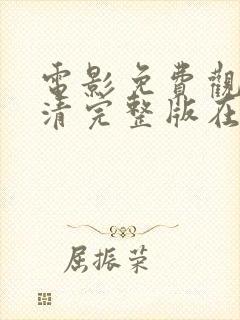 電影免費觀
清完整版在
屈振荣